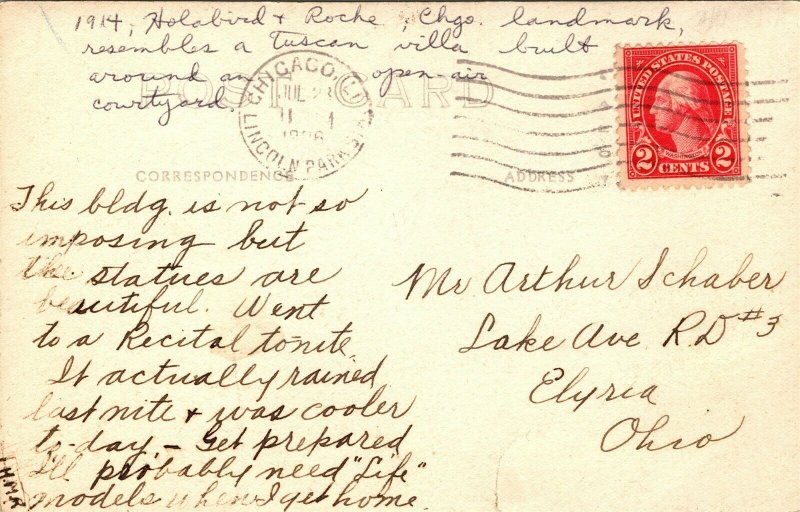 1914, Holabird & Roche, Chgo. landmark,
resembles a Tuscan villa built
around an open-air
courtyard.
POST CARD
CHICAGO, ILL.
JUL 23
1926
LINCOLN PARK STA.
UNITED STATES POSTAGE
WASHINGTON
2 CENTS 2
CORRESPONDENCE
ADDRESS
This bldg. is not so
imposing but
the statues are
beautiful. Went
to a Recital tonite.
It actually rained
last nite & was cooler
to-day - Get prepared
I'll probably need "Life"
models when I get home.
H.M.R.
Mr Arthur Schaber
Lake Ave R.D #3
Elyria
Ohio